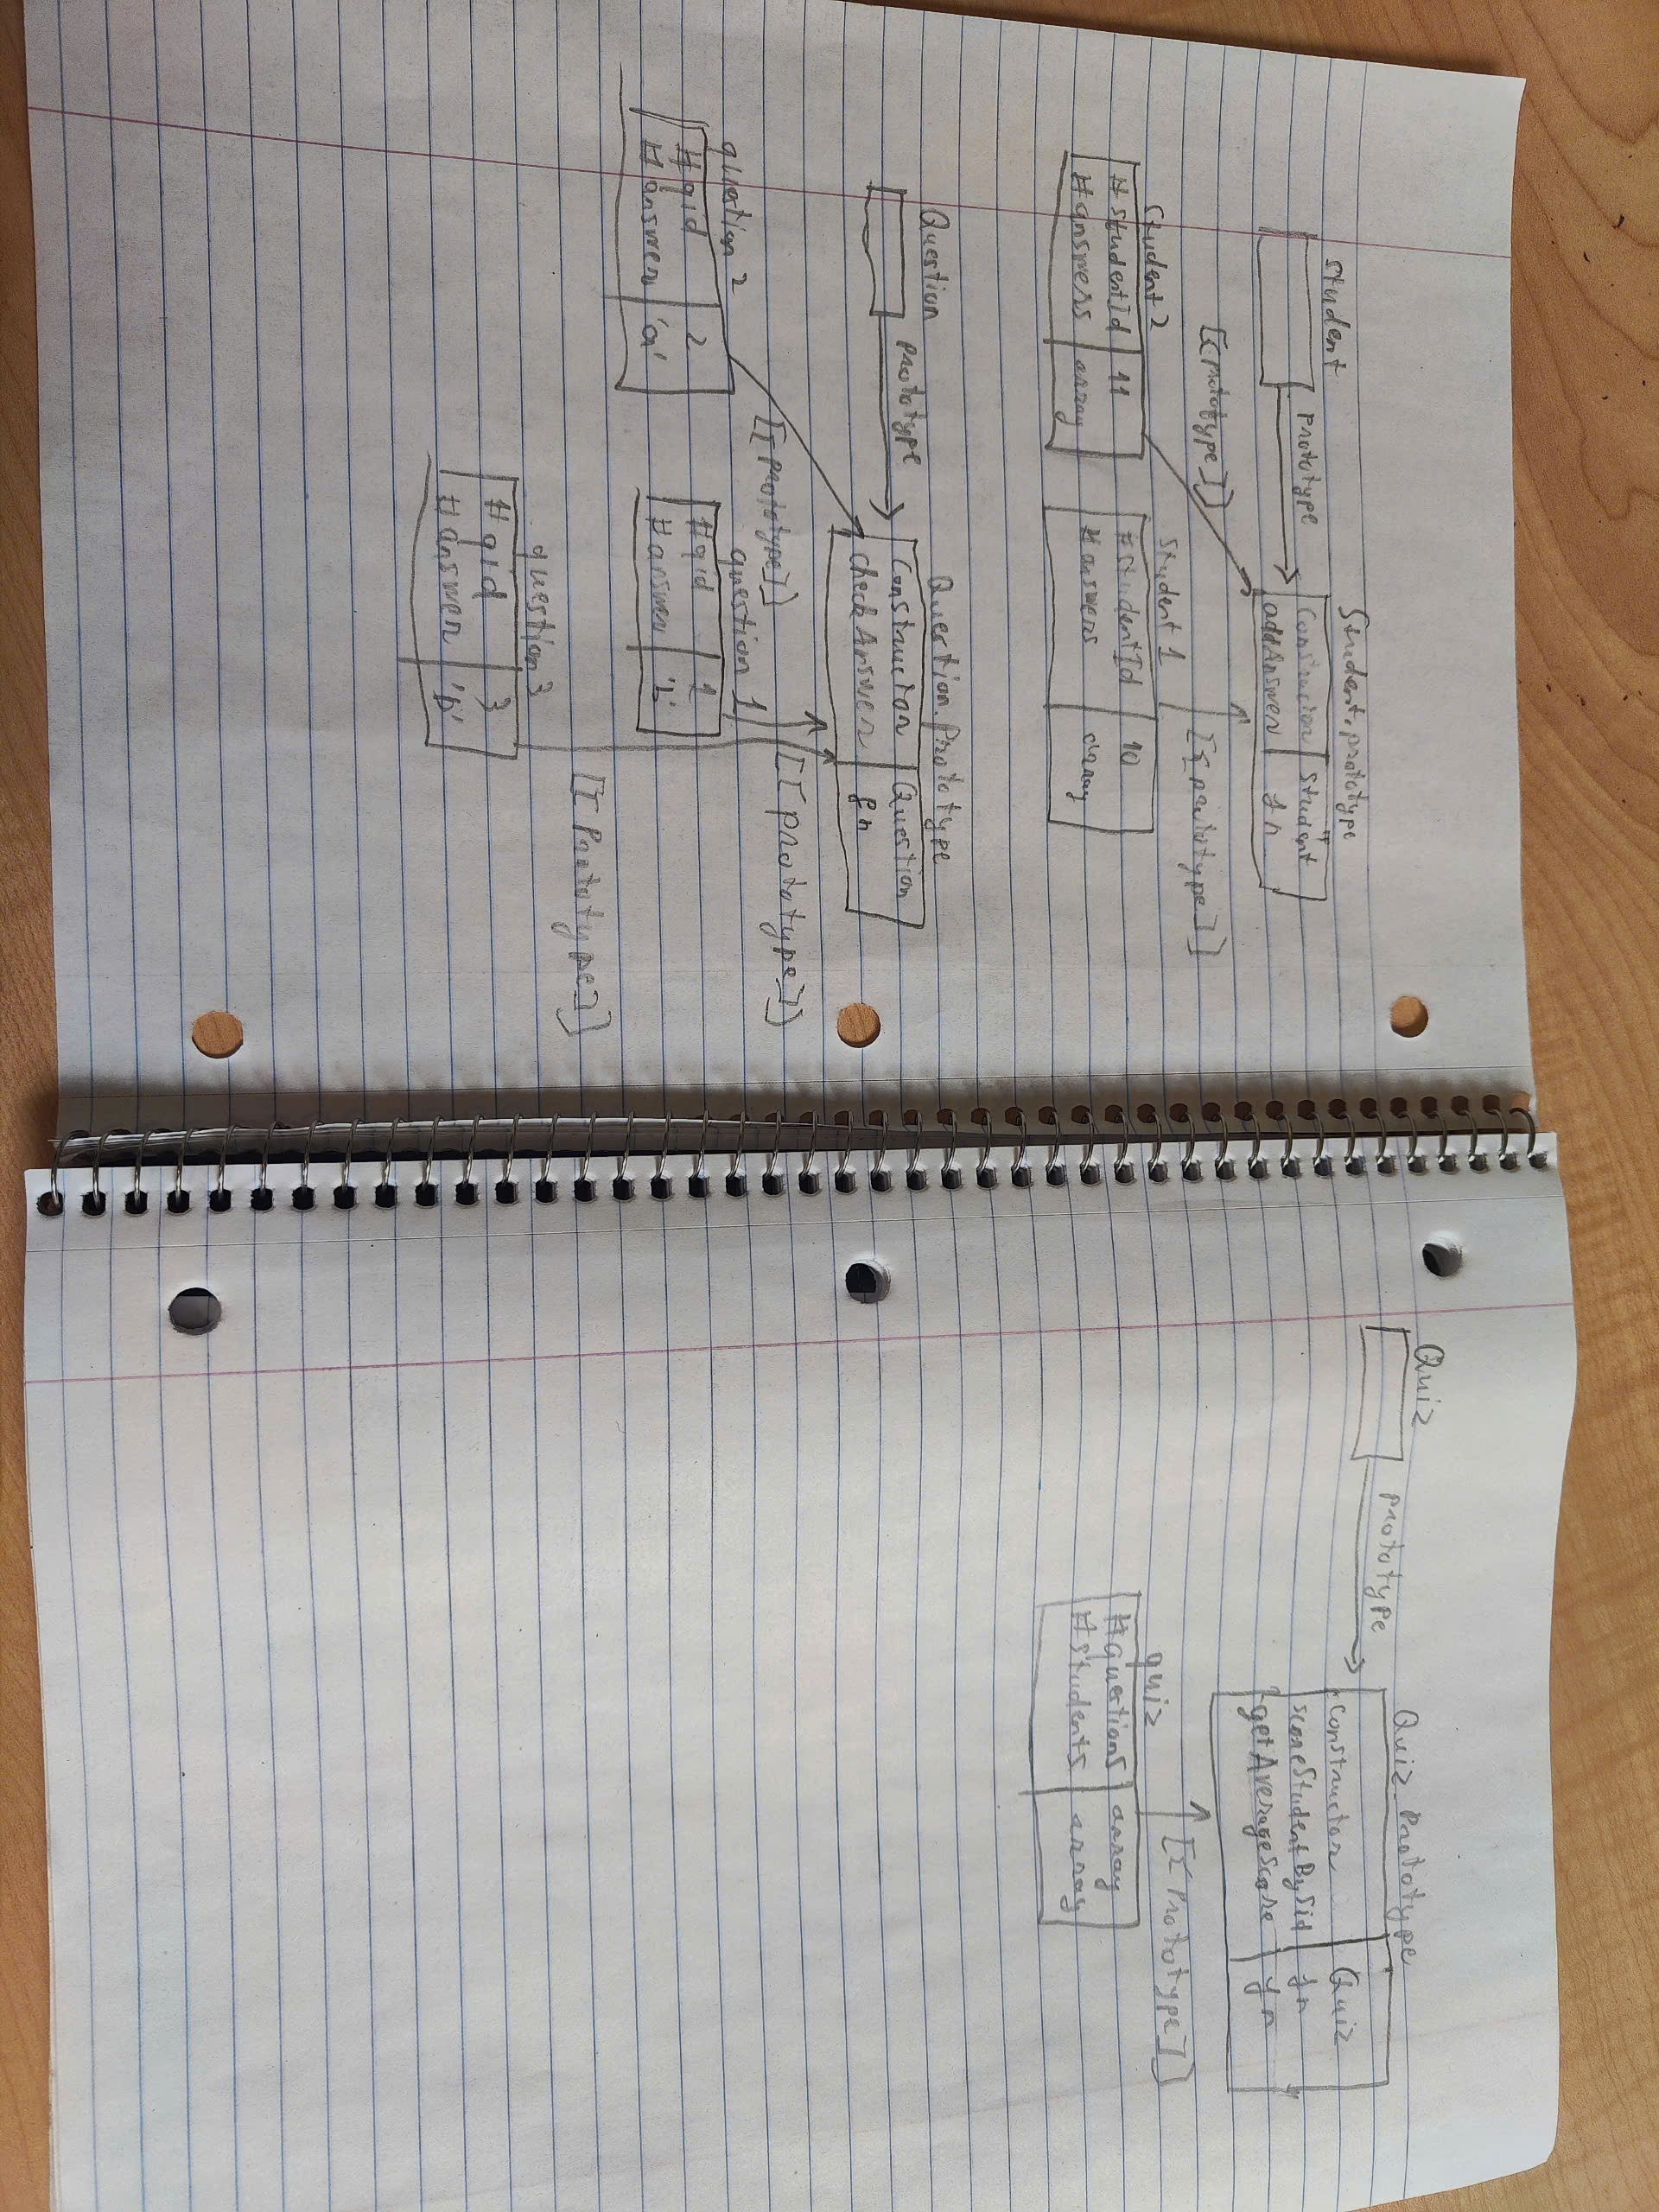 Student
Student.prototype
prototype
Constructor Student
addAnswer fn
[[Prototype]]
[[prototype]]
Student 2
#studentId 11
#answers array
Student 1
#studentId 10
#answers array
Question
Question.Prototype
prototype
Constructor Question
checkAnswer fn
[[Prototype]]
[[prototype]]
question 2
#qid 2
#answer 'a'
question 1
#qid 1
#answer '2'
[[Prototype]]
question3
#qid 3
#answer 'b'
Quiz
Quiz.Prototype
prototype
Constructor Quiz
scoreStudentBySid fn
getAverageScore fn
[[Prototype]]
quiz
#questions array
#students array